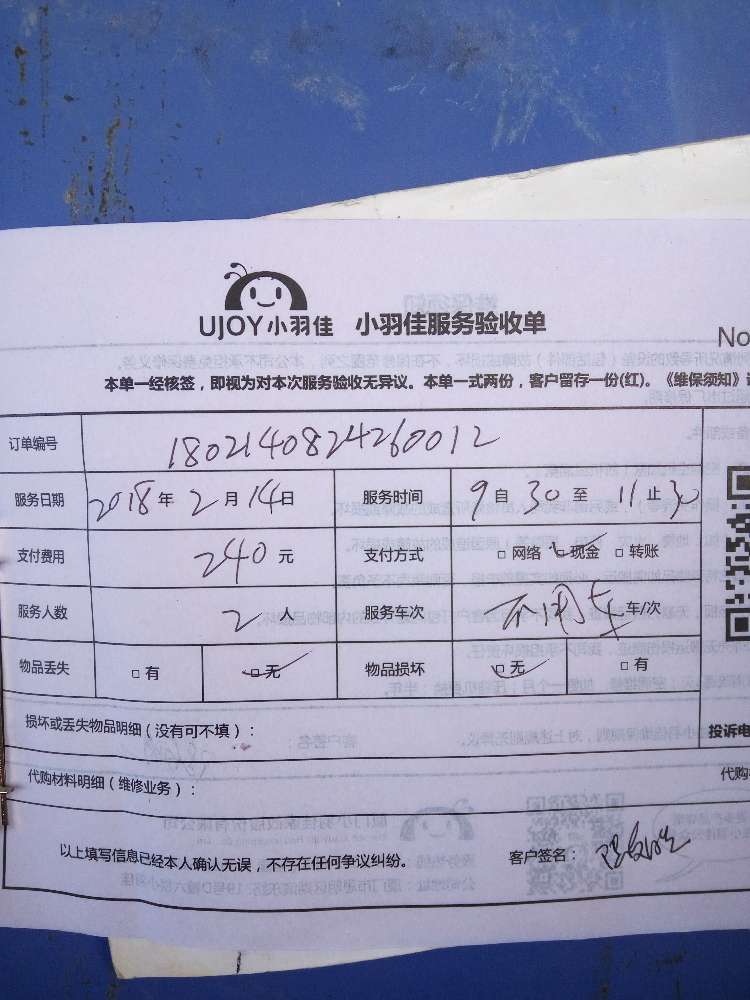 UJOY小羽佳 小羽佳服务验收单
No
本单一经核签，即视为对本次服务验收无异议。本单一式两份，客户留存一份(红)。《维保须知》
订单编号 1802140824260012
服务日期 2018年2月14日 服务时间 9自30至11止30
支付费用 240元 支付方式 □网络 □现金 □转账
服务人数 2人 服务车次 不用车 车/次
物品丢失 □有 □无 物品损坏 □无 □有
损坏或丢失物品明细（没有可不填）：
投诉电
代购材料明细（维修业务）：
代购
以上填写信息已经本人确认无误，不存在任何争议纠纷。 客户签名：